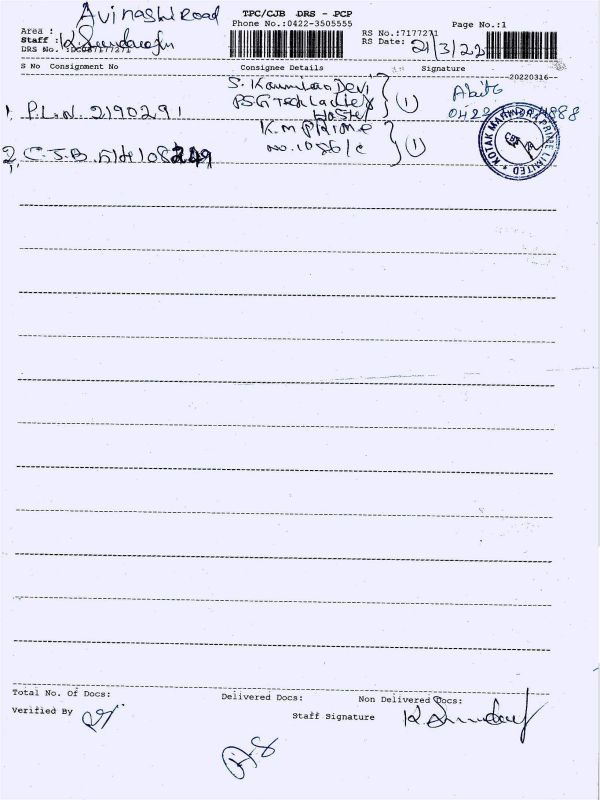 Avinashi Road
TPC/CJB DRS - PCP
Phone No.:0422-3505555
Page No.:1
Area :
Staff : K. Sundar
RS No.:7177271
RS Date: 21/3/22
DRS No.
S No Consignment No Consignee Details Signature
20220316
S. Devi
PSG Tech Ladies
Hostel (1)
1. P.L.N. 2190291
0422
K.M PRIME
no. 1056/c (1)
2. C.J.B.
KOTAK MAHINDRA PRIME LIMITED
CBE
Total No. Of Docs: Delivered Docs: Non Delivered Docs:
Verified By Staff Signature